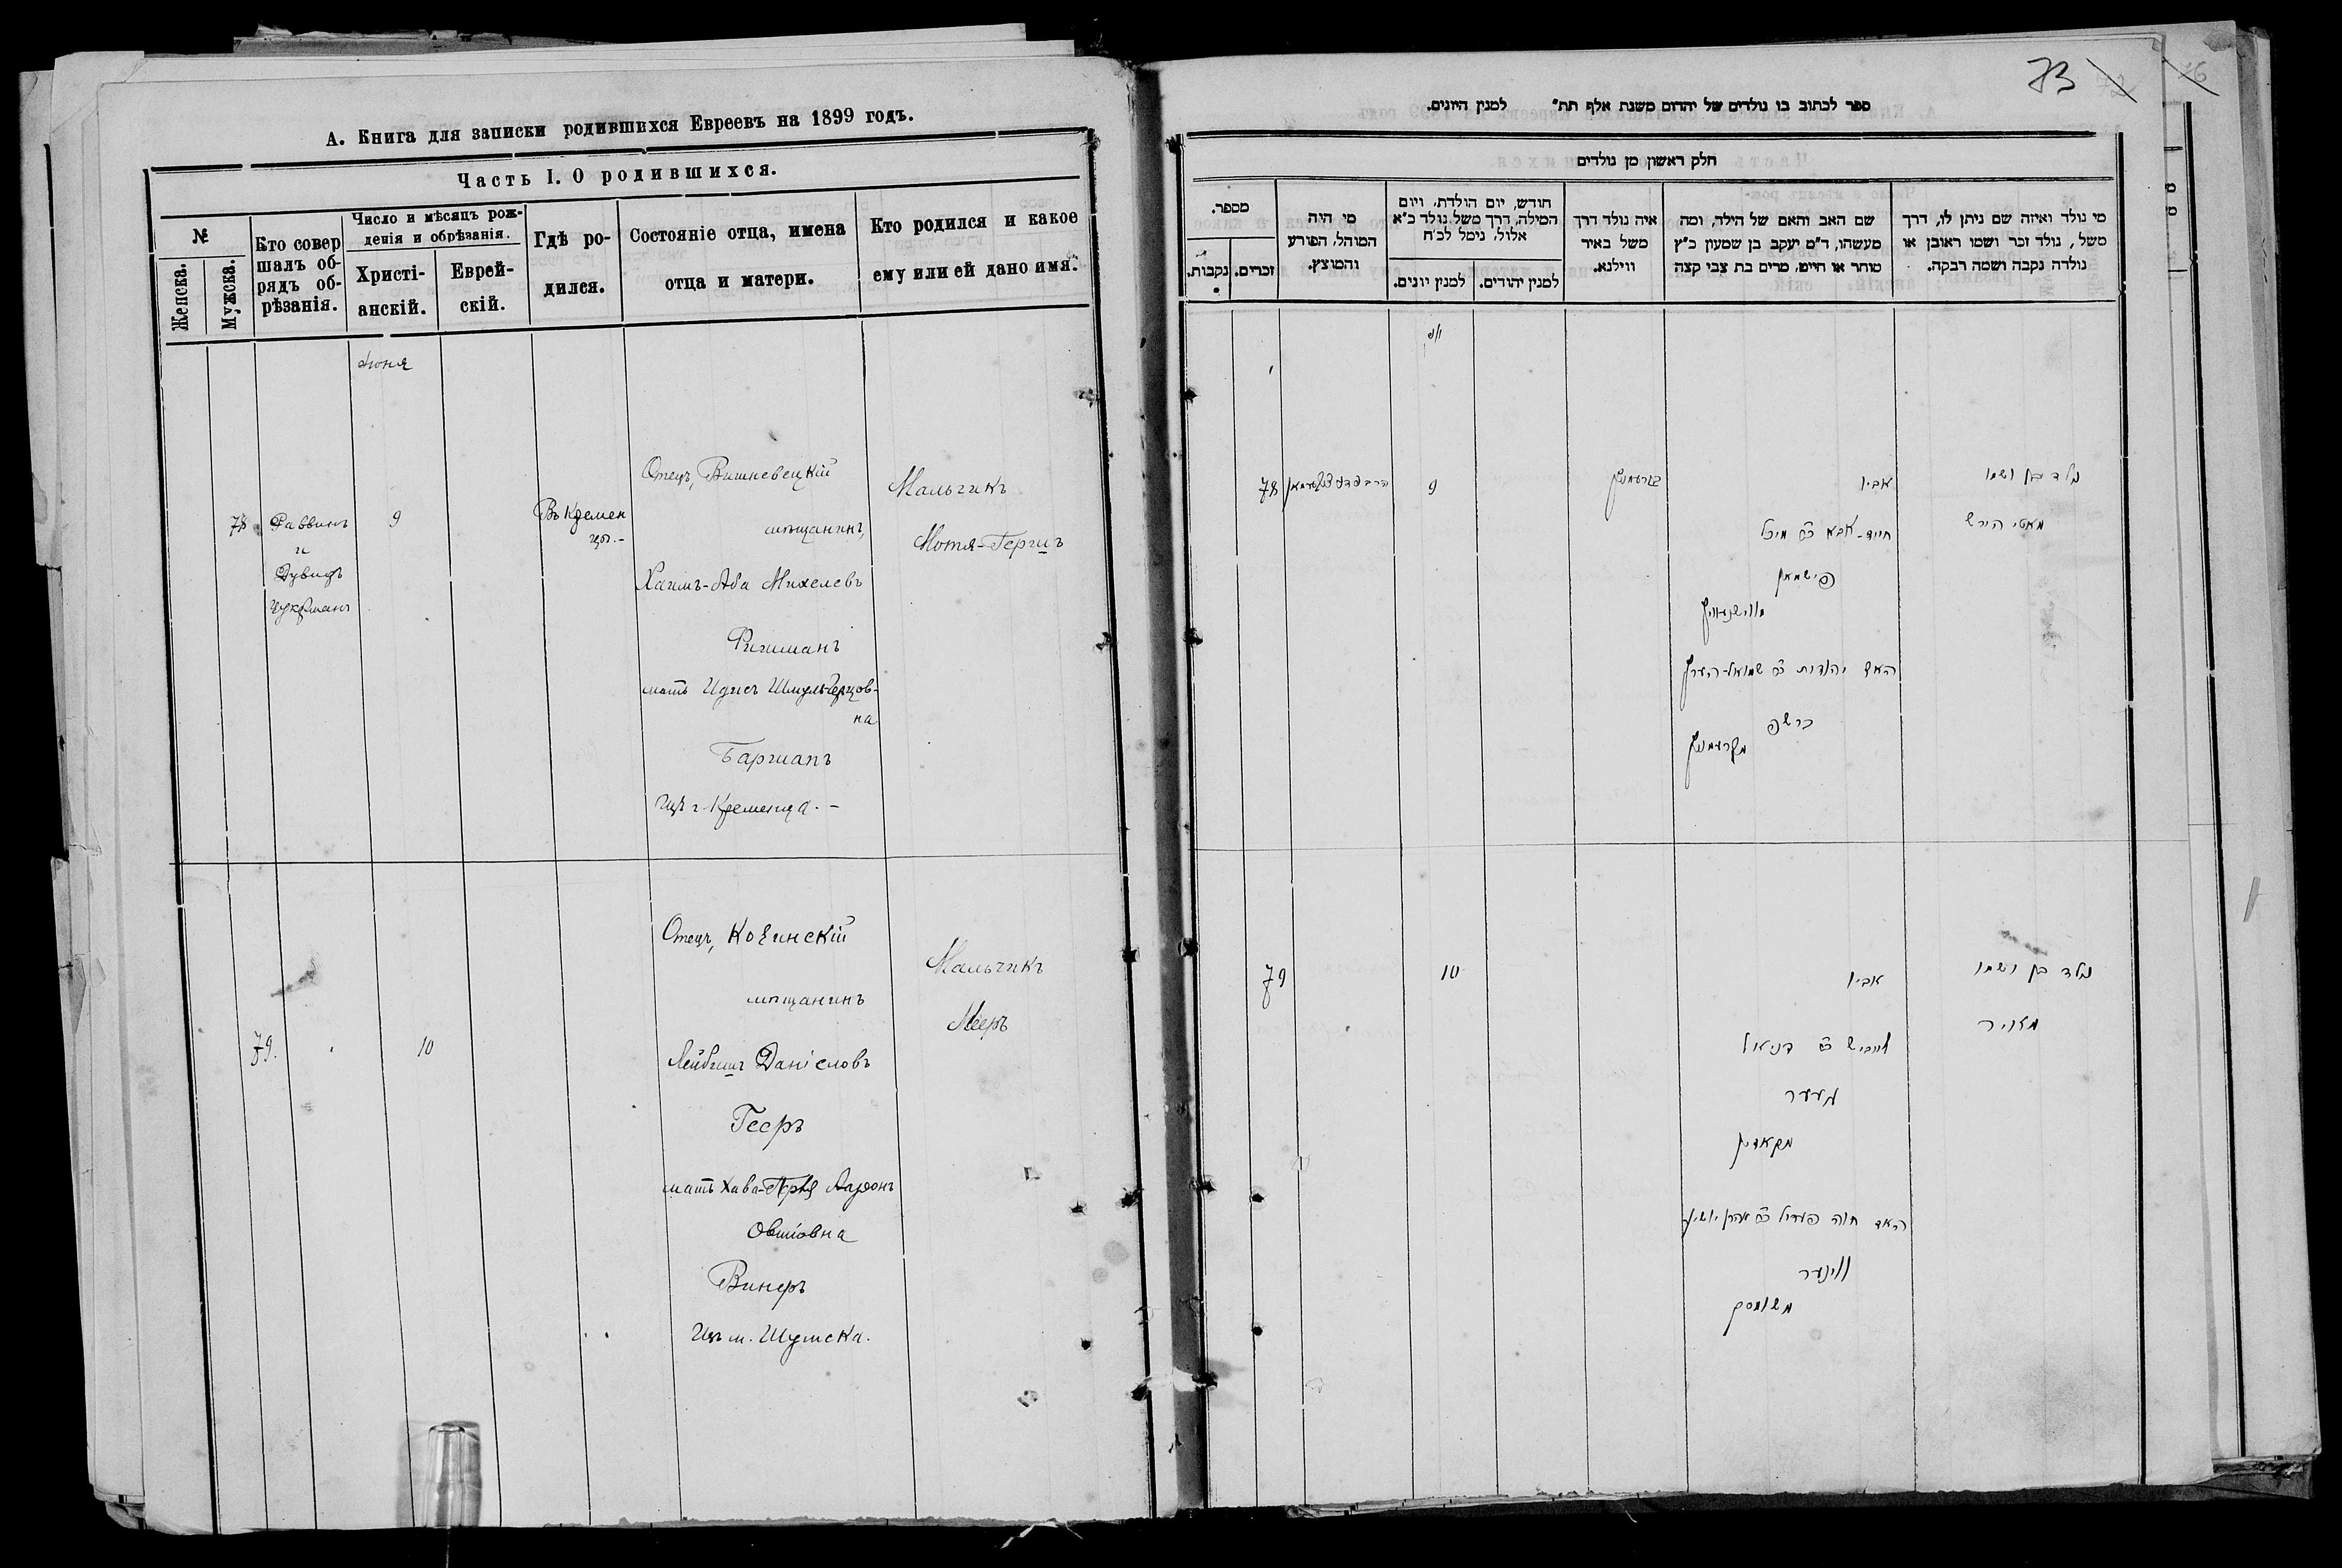 А. Книга для записки родившихся Евреевъ на 1899 годъ.
Часть I. О родившихся.
№
Женска.
Мужска.
Кто совер
шалъ об-
рядъ об-
рѣзанія.
Число и мѣсяцъ рож-
денія и обрѣзанія.
Христі-
анскій.
Еврей-
скій.
Гдѣ ро-
дился.
Состояніе отца, имена
отца и матери.
Кто родился и какое
ему или ей дано имя.
Іюня
78
Раввинъ
и
Дувидъ
Цукерманъ
9
Въ Кремен
цѣ.-
Отецъ, Вишневецкій
мѣщанинъ,
Хаимъ-Аба Михелевъ
мать Идись Шмуль-Герцов-
на
изъ г. Кременца.-
Мальчикъ
Мотя-Гершъ
79.
10
Отецъ, Козинскій
мѣщанинъ
Лейбишъ Даніеловъ
Гееръ
мать Хава-Перля Ааронъ
Овшіовна
Винеръ
Изъ м. Шумска.
Мальчикъ
Мееръ
73
ספר לכתוב בו נולדים של יהדום משנת אלף תת״ למנין היונים.
חלק ראשון מן נולדים
מספר.
נקבות.
זכרים.
מי היה
המוהל, הפורע
והמוצץ.
חודש, יום הולדת, ויום
המילה, דרך משל נולד כ״א
אלול, נימל לכ״ח
למנין יונים.
למנין יהודים.
איה נולד דרך
משל באיר
ווילנא.
שם האב והאם של הילד, ומה
מעשהו, ד״מ יעקב בן שמעון כ״ץ
סוחר או חייט, מרים בת צבי קצה
מי נולד ואיזה שם ניתן לו, דרך
משל, נולד זכר ושמו ראובן או
נולדה נקבה ושמה רבקה.
78
9
בקרעמניץ
אביו
חיים-אבא ב״ר מיכל
פישמאן
מווישניוויץ
האם יהודית ב״ר שמואל-הערץ
מקרעמניץ
נולד בן ושמו
מאטי הירש
79
10
אביו
לייביש ב״ר דניאל
העער
מקאזין
האם חוה פערל ב״ר אהרן יושיע
ווינער
משומסק
נולד בן ושמו
מאיר